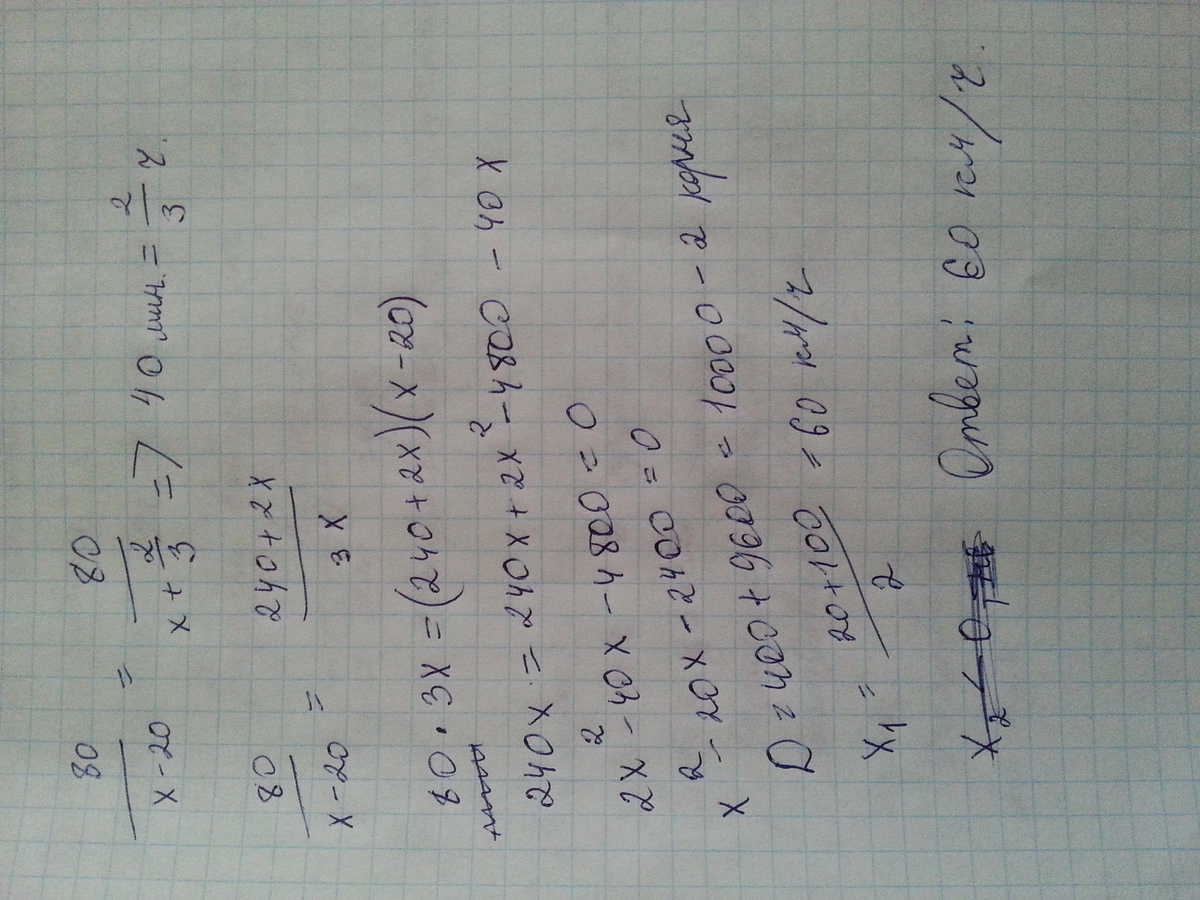 80/(x-20) = 80/(x + 2/3) => 40 мин. = 2/3 ч.
80/(x-20) = (240+2x)/(3x)
80 · 3x = (240+2x)(x-20)
240x = 240x + 2x² - 4800 - 40x
2x² - 40x - 4800 = 0
x² - 20x - 2400 = 0
D = 400 + 9600 = 10000 - 2 корня
x₁ = (20+100)/2 = 60 км/ч
x₂ < 0 Ответ: 60 км/ч.